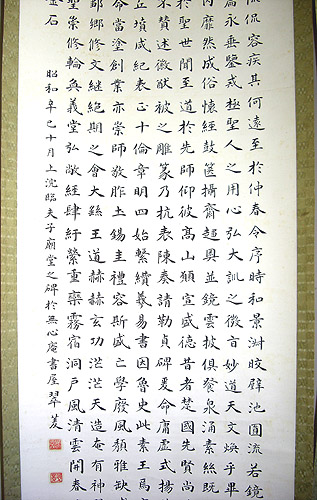 侃侃容疾其何遠至於仲春令序時和景淑皎璧池圓流若鏡
永垂鑒戒極聖人之用心弘大訓之微旨妙道天文煥乎畢
靡然成俗懷經鼓篋攝齊趨奧並鏡雲披俱發泉涌素絲既
於聖世聞至道於先師仰彼高山願宣盛德昔者楚國先賢尚
采贊述徽猷被之雕篆乃抗表陳奏請勒貞碑爰命庸虛式揚
丘墳咸紀表正十倫章明四始繫纘羲易書因魯史此素王焉
命當塗創業亦崇師敬胙土錫圭禮容斯盛亡學廢風頹雅缺
鄉修文継絕期之會大繇王道赫赫玄功茫茫天造奄有神
聖崇修輪奐義堂弘敞經肆紆縈重欒霧宿洞戶風清雲開春
金石
昭和辛巳十月上浣臨夫子廟堂之碑於無心庵書屋 翠菱